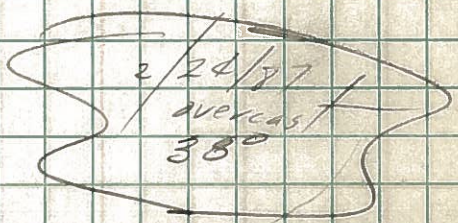 2/24/87
overcast
38°